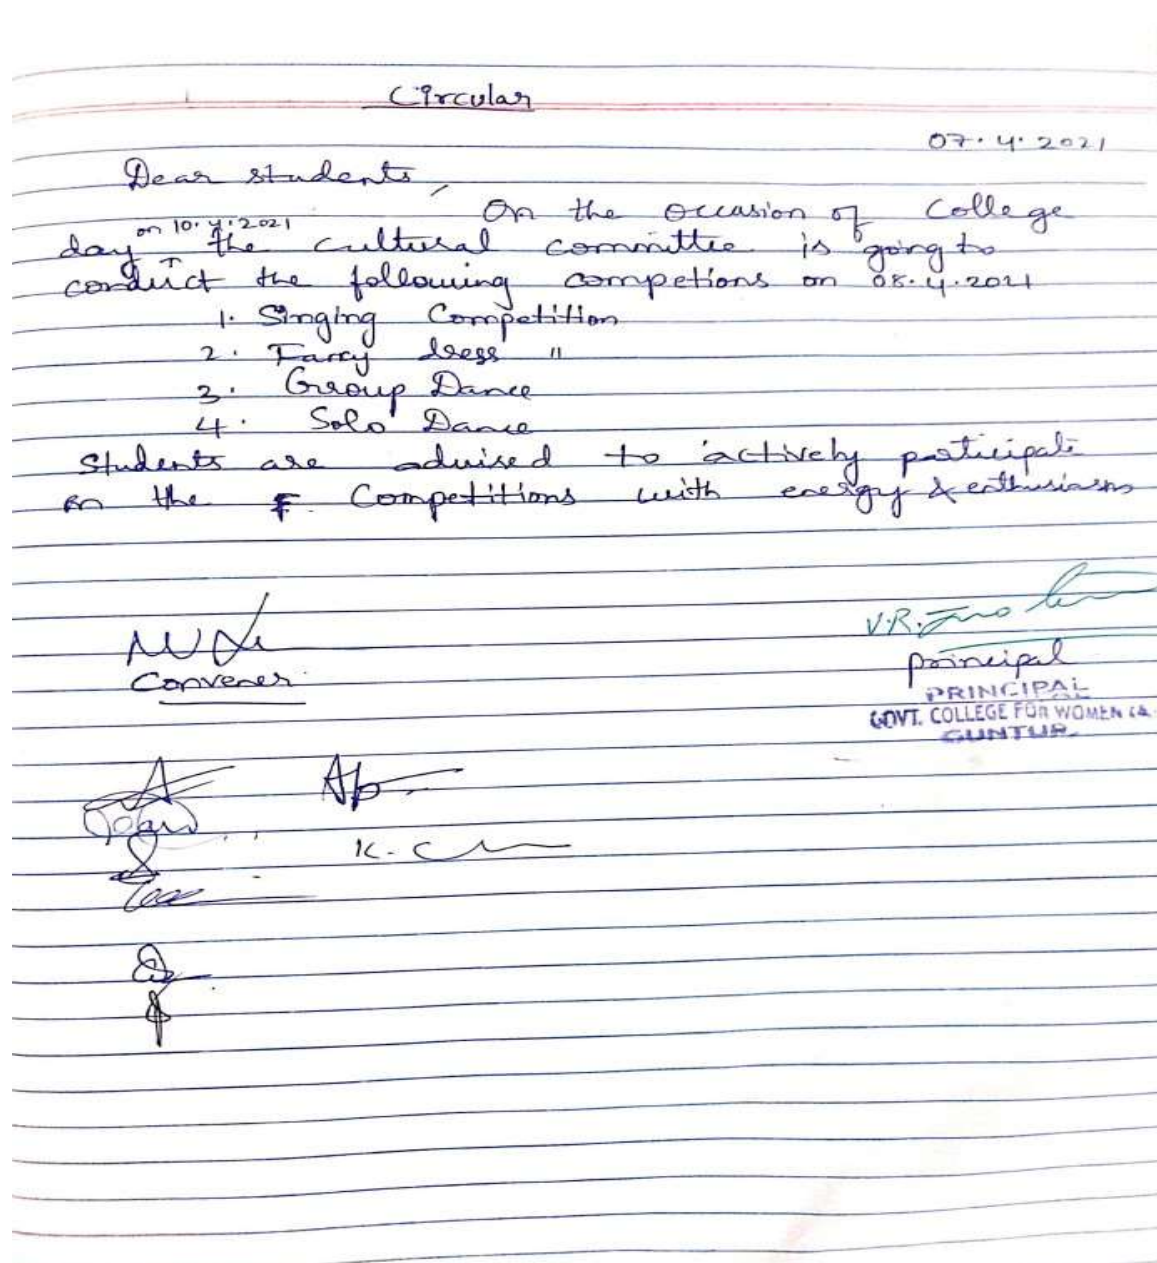 Circular
07.4.2021
Dear students,
On the occasion of College
day on 10.4.2021 the cultural committee is going to
conduct the following competions on 08.4.2021
1. Singing Competition
2. Fancy dress "
3. Group Dance
4. Solo Dance
Students are advised to actively participate
in the Competitions with energy & enthusiasm
V.R.
Convener
principal
PRINCIPAL
GOVT. COLLEGE FOR WOMEN (A
GUNTUR
K. C